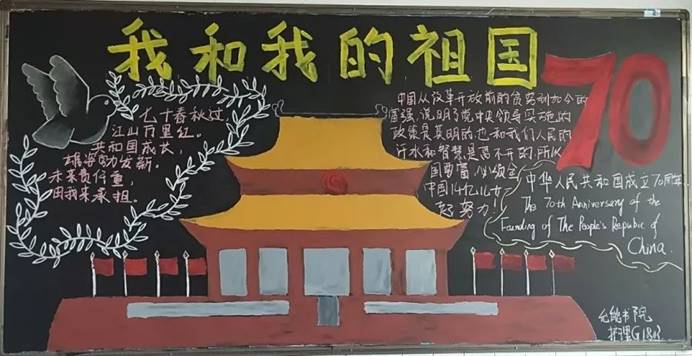 我和我的祖国
70
七十春秋过，
江山万里红。
共和国成长，
雄姿勃发新。
未来责任重，
由我来承担。
中国从改革开放前的贫穷到如今的
富强，说明了党中央领导实施的
政策是英明的也和我们人民的
汗水和智慧是离不开的，所以
国要富，必须全
中国14亿儿女一
起努力！
中华人民共和国成立70周年
The 70th Anniversary of the
Founding of The People's Republic of
China.
书院
护理G18